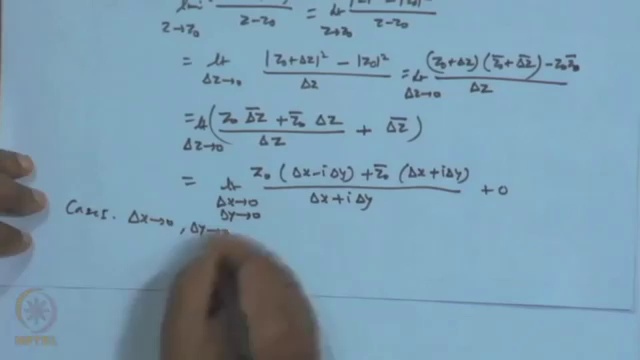 z→z₀ z-z₀ = lt z→z₀ |z|² - |z₀|² / z-z₀
= lt Δz→0 |z₀+Δz|² - |z₀|² / Δz = lt Δz→0 (z₀+Δz)(z̄₀+Δ̄z̄) - z₀z̄₀ / Δz
= lt Δz→0 (z₀ Δ̄z̄ + z̄₀ Δz / Δz + Δ̄z̄)
= lt Δx→0 Δy→0 z₀ (Δx-iΔy) + z̄₀ (Δx+iΔy) / Δx+iΔy + 0
Case I. Δx→0, Δy→
NPTEL